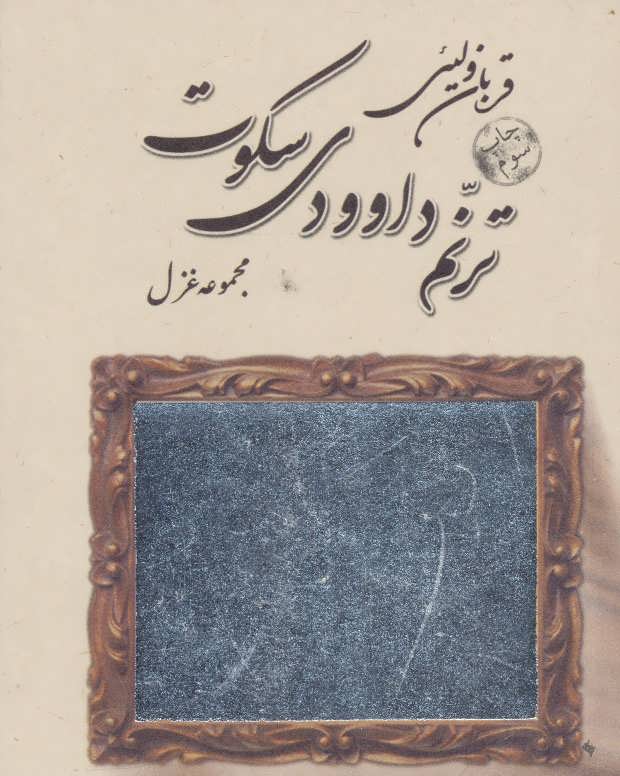 قربان ولیئی
چاپ
سوم
ترنّم داوودی سکوت
مجموعه غزل